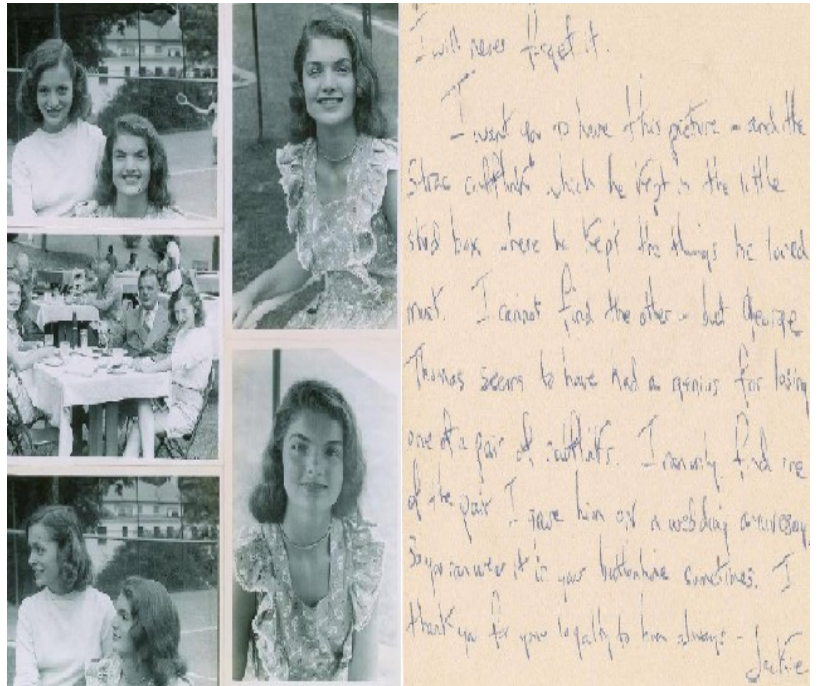 I will never forget it.
I want you to have this picture – and the
cufflink which he kept in the little
stud box where he kept the things he loved
most. I cannot find the other – but George
Thomas seems to have had a genius for losing
one of a pair of cufflinks. I can only find one
of the pair I gave him for a wedding anniversary
So you can wear it in your buttonhole sometimes. I
thank you for your loyalty to him always –
Jackie